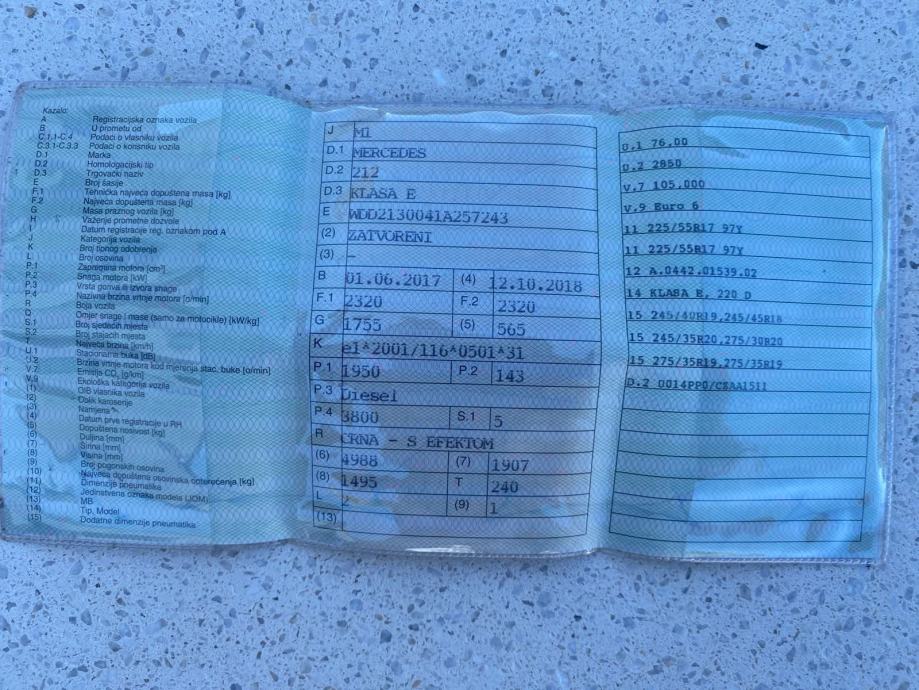 Kazalo:
A Registracijska oznaka vozila
B U prometu od
C.1.1-C.4 Podaci o vlasniku vozila
C.3.1-C.3.3 Podaci o korisniku vozila
D.1 Marka
D.2 Homologacijski tip
D.3 Trgovački naziv
E Broj šasije
F.1 Tehnička najveća dopuštena masa [kg]
F.2 Najveća dopuštena masa [kg]
G Masa praznog vozila [kg]
H Važenje prometne dozvole
I Datum registracije reg. oznakom pod A
J Kategorija vozila
K Broj tipnog odobrenja
L Broj osovina
P.1 Zapremina motora [cm³]
P.2 Snaga motora [kW]
P.3 Vrsta goriva ili izvora snage
P.4 Nazivna brzina vrtnje motora [o/min]
R Boja vozila
Q Omjer snage i mase (samo za motocikle) [kW/kg]
S.1 Broj sjedećih mjesta
S.2 Broj stajaćih mjesta
T Najveća brzina [km/h]
U.1 Stacionarna buka [dB]
U.2 Brzina vrtnje motora kod mjerenja stac. buke [o/min]
V.7 Emisija CO₂ [g/km]
V.9 Ekološka kategorija vozila
(1) OIB vlasnika vozila
(2) Oblik karoserije
(3) Namjena
(4) Datum prve registracije u RH
(5) Dopuštena nosivost [kg]
(6) Duljina [mm]
(7) Širina [mm]
(8) Visina [mm]
(9) Broj pogonskih osovina
(10) Najveća dopuštena osovinska opterećenja [kg]
(11) Dimenzije pneumatika
(12) Jedinstvena oznaka modela (JOM)
(13) MB
(14) Tip, Model
(15) Dodatne dimenzije pneumatika
J M1
D.1 MERCEDES
D.2 212
D.3 KLASA E
E WDD2130041A257243
(2) ZATVORENI
(3) –
B 01.06.2017 (4) 12.10.2018
F.1 2320 F.2 2320
G 1755 (5) 565
K e1*2001/116*0501*31
P.1 1950 P.2 143
P.3 Diesel
P.4 3800 S.1 5
R CRNA - S EFEKTOM
(6) 4988 (7) 1907
(8) 1495 T 240
L 2 (9) 1
(13)
U.1 76.00
U.2 2850
V.7 105.000
V.9 Euro 6
11 225/55R17 97Y
11 225/55R17 97Y
12 A.0442.01539.02
14 KLASA E, 220 D
15 245/40R19,245/45R18
15 245/35R20,275/30R20
15 275/35R19,275/35R19